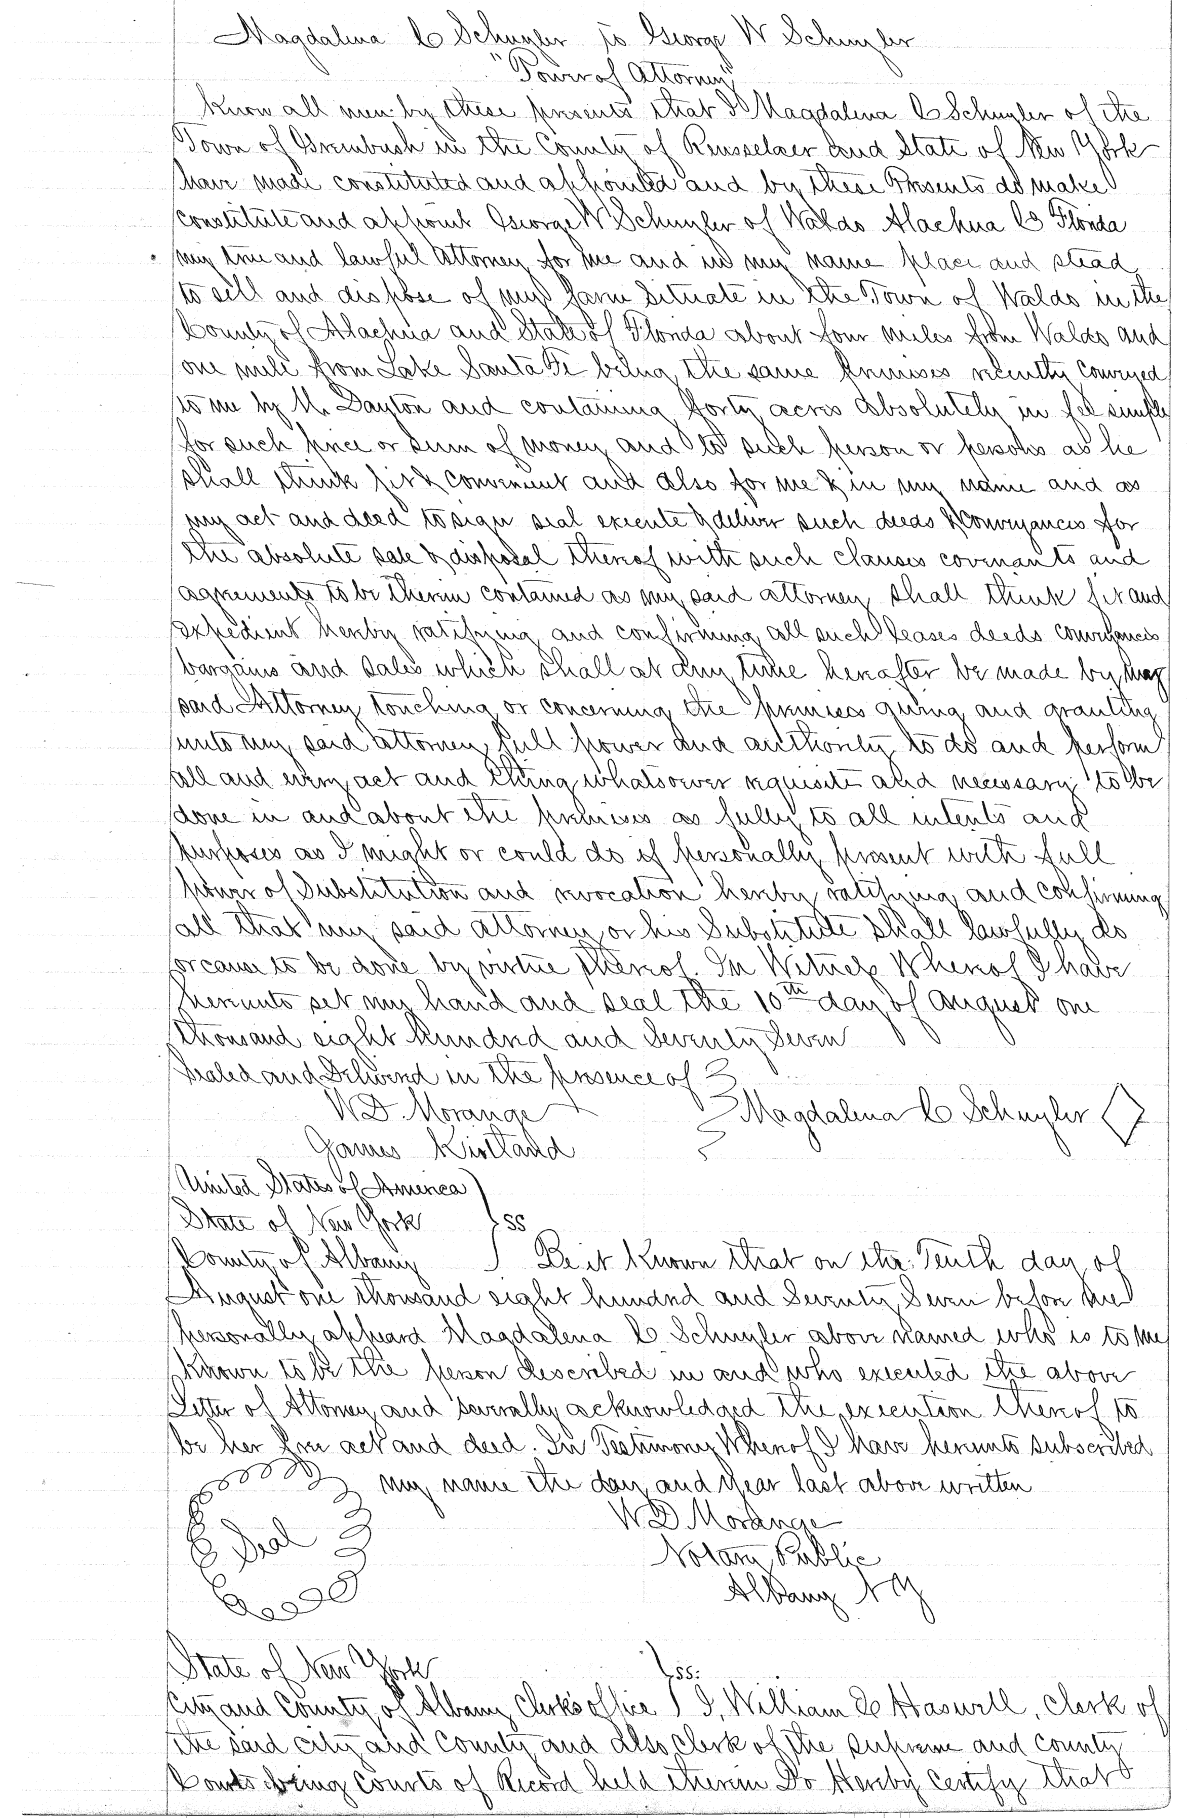 Magdalena C Schuyler to George W Schuyler
"Power of Attorney"
Know all men by these presents that I Magdalena C Schuyler of the
Town of Grenbush in the County of Rensselaer and State of New York
have made constituted and appointed and by these Presents do make
constitute and appoint George W Schuyler of Waldo Alachua Co Florida
my true and lawful Attorney for me and in my name place and stead
to sell and dispose of my farm Situate in the Town of Waldo in the
County of Alachua and State of Florida about four miles from Waldo and
one mile from Lake Santa Fe being the same premises recently conveyed
to me by M. Dayton and containing forty acres absolutely in fee simple
for such price or sum of money and to such person or persons as he
shall think fit & convenient and also for me & in my name and as
my act and deed to sign seal execute & deliver such deeds & Conveyances for
the absolute sale & disposal thereof with such clauses covenants and
agreements to be therein contained as my said attorney shall think fit and
expedient hereby ratifying and confirming all such leases deeds conveyances
bargains and sales which shall at any time hereafter be made by my
said Attorney touching or concerning the premises giving and granting
unto my said attorney full power and authority to do and perform
all and every act and thing whatsoever requisite and necessary to be
done in and about the premises as fully to all intents and
purposes as I might or could do if personally present with full
power of Substitution and revocation hereby ratifying and confirming
all that my said attorney or his Substitute shall lawfully do
or cause to be done by virtue thereof. In Witness Whereof I have
hereunto set my hand and seal the 10th day of August one
thousand eight hundred and Seventy Seven
Sealed and Delivered in the presence of
W D. Morange Magdalena C Schuyler
James Kirtland
United States of America
State of New York ss
County of Albany Be it Known that on the Tenth day of
August one thousand eight hundred and Seventy Seven before me
personally appeard Magdalena C Schuyler above named who is to me
known to be the person described in and who executed the above
Letter of Attorney and severally acknowledged the execution thereof to
be her free act and deed. In Testimony Whereof I have hereunto subscribed
my name the day and year last above written
Seal
W D Morange
Notary Public
Albany N Y
State of New York ss.
City and County of Albany Clerk's office I, William Haswell, Clerk of
the said city and County and also Clerk of the supreme and county
Courts being Courts of Record held therein Do Hereby Certify that